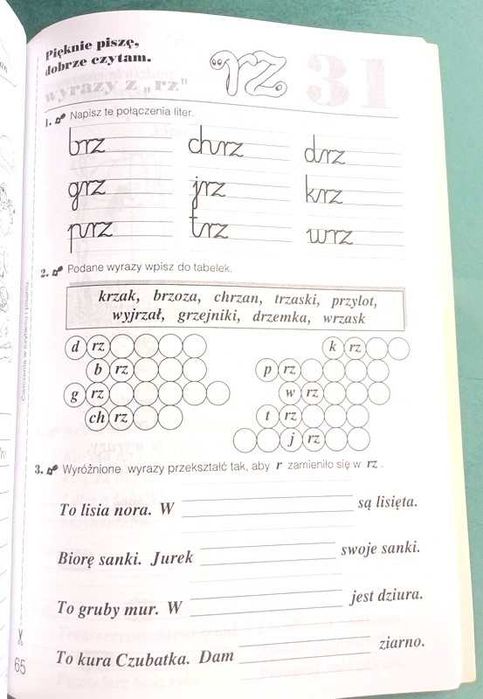 Pięknie piszę,
dobrze czytam.
wyrazy z „rz"
rz 31
1. Napisz te połączenia liter.
brz chrz drz
grz jrz krz
prz trz wrz
2. Podane wyrazy wpisz do tabelek.
krzak, brzoza, chrzan, trzaski, przylot,
wyjrzał, grzejniki, drzemka, wrzask
d rz k rz
b rz p rz
g rz w rz
ch rz t rz
j rz
3. Wyróżnione wyrazy przekształć tak, aby r zamieniło się w rz.
To lisia nora. W są lisięta.
Biorę sanki. Jurek swoje sanki.
To gruby mur. W jest dziura.
To kura Czubatka. Dam ziarno.
65